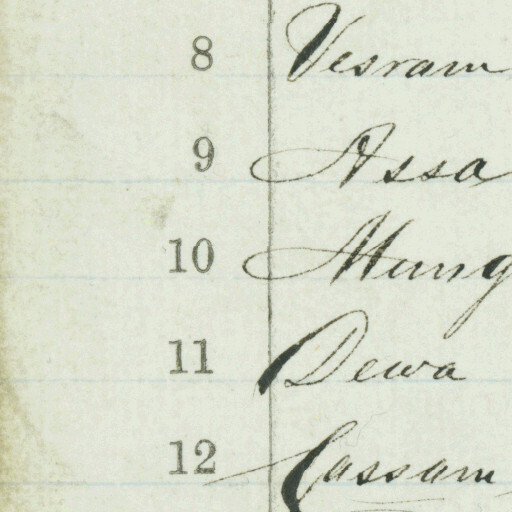 8 Vesram
9 Assa
10 Mung
11 Dewa
12 Cassam